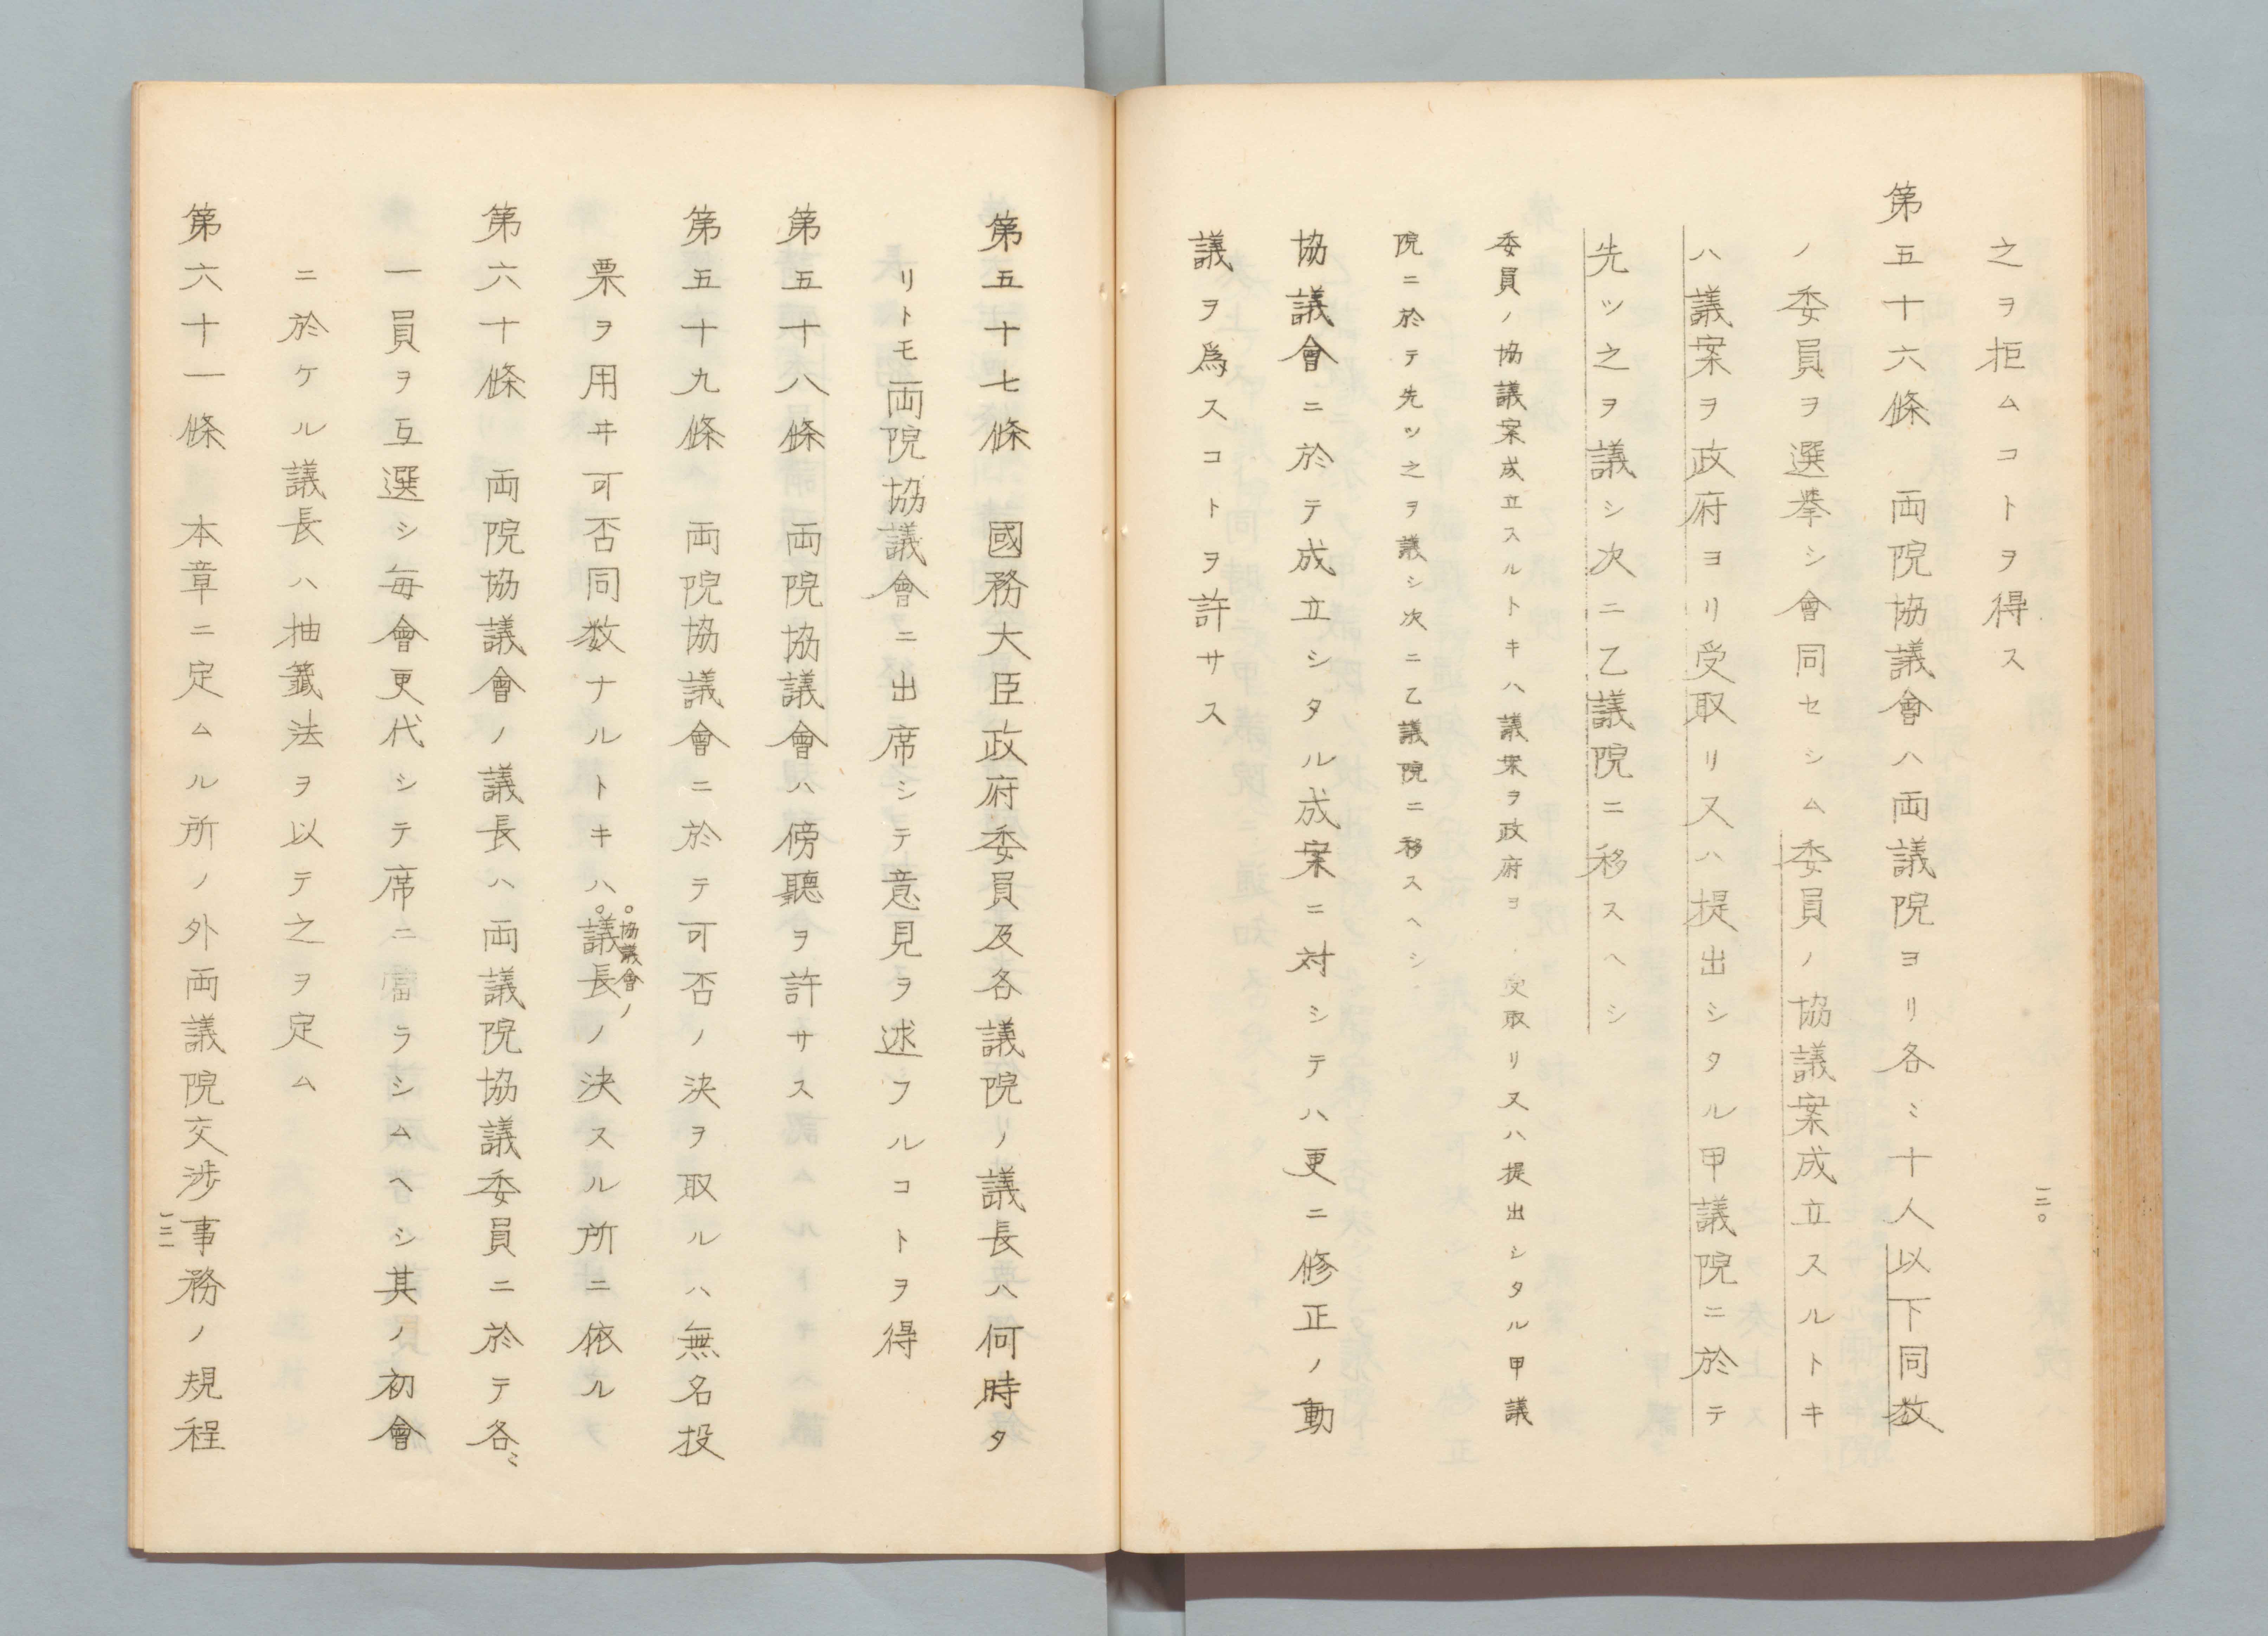 之ヲ拒ムコトヲ得ス
第五十六條　両院協議會ハ両議院ヨリ各〻十人以下同数
ノ委員ヲ選挙シ會同セシム委員ノ協議案成立スルトキ
ハ議案ヲ政府ヨリ受取リ又ハ提出シタル甲議院ニ於テ
先ツ之ヲ議シ次ニ乙議院ニ移スヘシ
委員ノ協議案成立スルトキハ議案ヲ政府ヨリ受取リ又ハ提出シタル甲議
院ニ於テ先ツ之ヲ議シ次ニ乙議院ニ移スヘシ
協議會ニ於テ成立シタル成案ニ対シテハ更ニ修正ノ動
議ヲ爲スコトヲ許サス
一二〇
第五十七條　國務大臣政府委員及各議院ノ議長ハ何時タ
リトモ両院協議會ニ出席シテ意見ヲ述フルコトヲ得
第五十八條　両院協議會ハ傍聽ヲ許サス
第五十九條　両院協議會ニ於テ可否ノ決ヲ取ルハ無名投
票ヲ用ヰ可否同数ナルトキハ。議長ノ決スル所ニ依ル
。協議會ノ
第六十條　両院協議會ノ議長ハ両議院協議委員ニ於テ各〻
一員ヲ互選シ毎會更代シテ席ニ當ラシムヘシ其ノ初會
ニ於ケル議長ハ抽籤法ヲ以テ之ヲ定ム
第六十一條　本章ニ定ムル所ノ外両議院交渉事務ノ規程
一二一